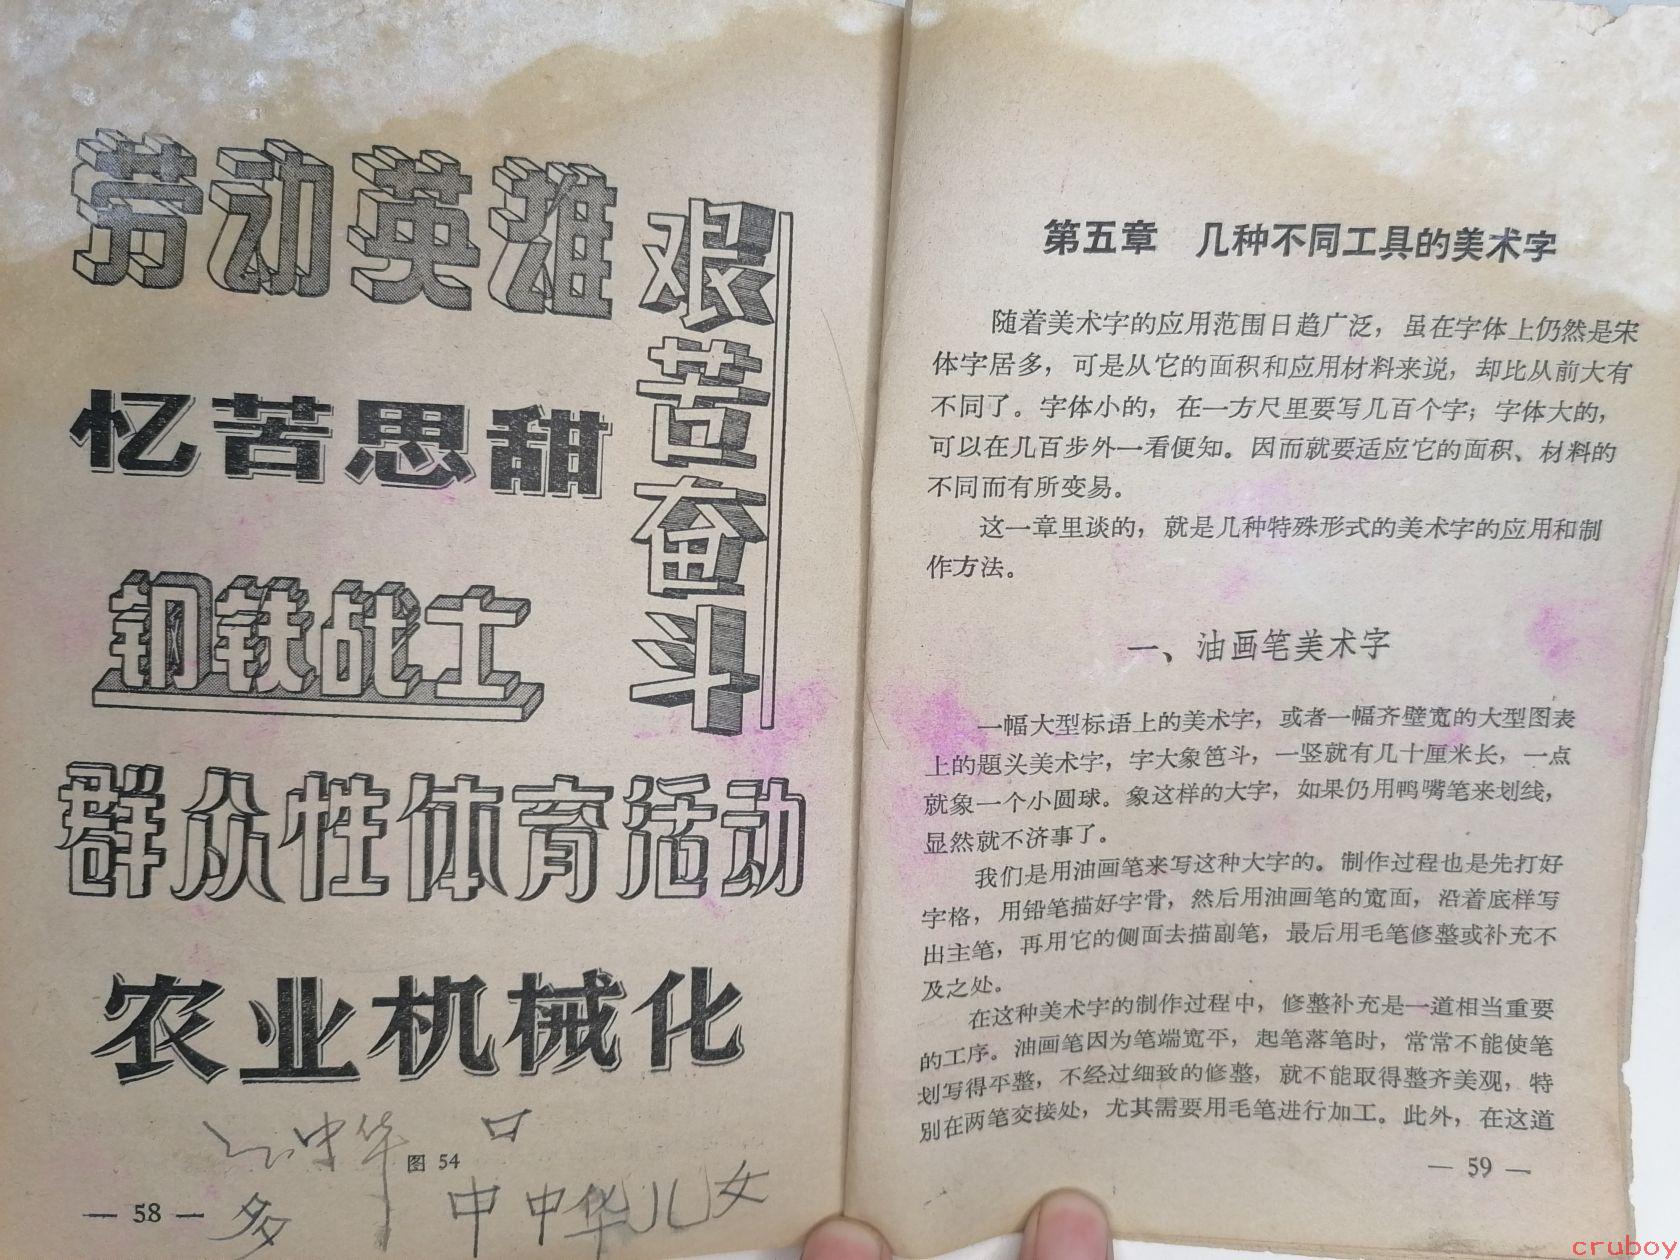 劳动英雄
艰苦奋斗
忆苦思甜
钢铁战士
群众性体育活动
农业机械化
中华
口
图 54
多
中中华儿女
— 58 —
第五章 几种不同工具的美术字
随着美术字的应用范围日趋广泛，虽在字体上仍然是宋
体字居多，可是从它的面积和应用材料来说，却比从前大有
不同了。字体小的，在一方尺里要写几百个字；字体大的，
可以在几百步外一看便知。因而就要适应它的面积、材料的
不同而有所变易。
这一章里谈的，就是几种特殊形式的美术字的应用和制
作方法。
一、油画笔美术字
一幅大型标语上的美术字，或者一幅齐壁宽的大型图表
上的题头美术字，字大象笆斗，一竖就有几十厘米长，一点
就象一个小圆球。象这样的大字，如果仍用鸭嘴笔来划线，
显然就不济事了。
我们是用油画笔来写这种大字的。制作过程也是先打好
字格，用铅笔描好字骨，然后用油画笔的宽面，沿着底样写
出主笔，再用它的侧面去描副笔，最后用毛笔修整或补充不
及之处。
在这种美术字的制作过程中，修整补充是一道相当重要
的工序。油画笔因为笔端宽平，起笔落笔时，常常不能使笔
划写得平整，不经过细致的修整，就不能取得整齐美观，特
别在两笔交接处，尤其需要用毛笔进行加工。此外，在这道
— 59 —
cruboy